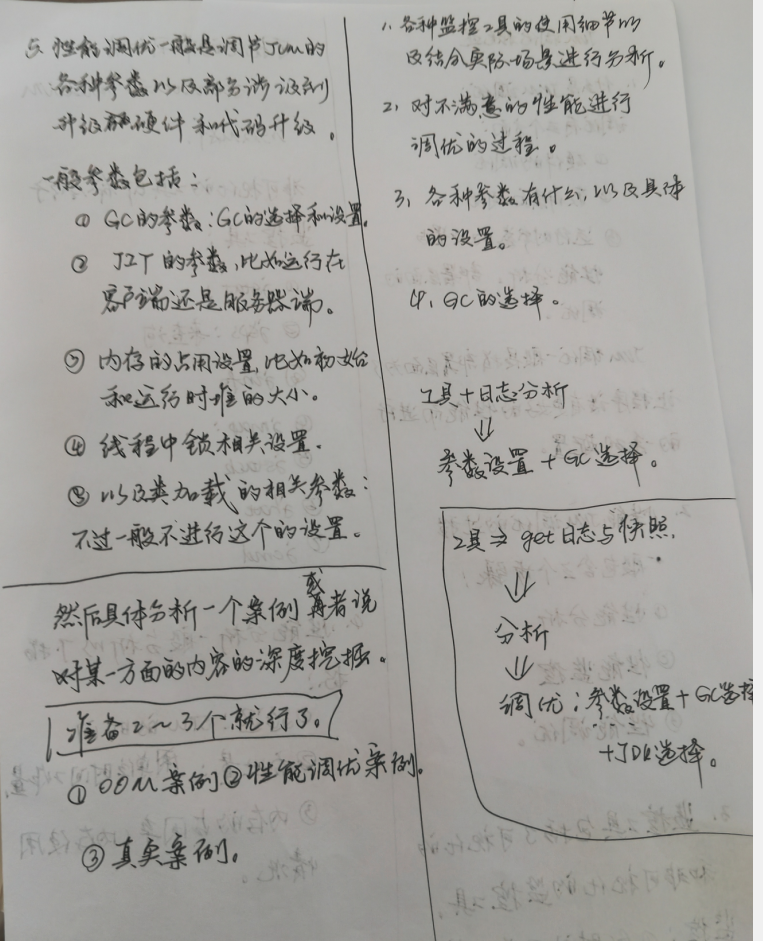 5、性能调优一般是调节JVM的
各种参数以及部分涉及到
升级硬件和代码升级。
一般参数包括：
① GC的参数：GC的选择和设置。
② JIT的参数，比如运行在
客户端还是服务器端。
③ 内存的占用设置，比如初始
和运行时堆的大小。
④ 线程中锁相关设置.
⑤ 以及类加载的相关参数：
不过一般不进行这个的设置。
然后具体分析一个案例或者说
对某一方面的内容的深度挖掘。
准备2～3个就行了。
① OOM案例②性能调优案例。
③真实案例。
1、各种监控工具的使用细节以
及结合实际场景进行分析。
2、对不满意的性能进行
调优的过程。
3、各种参数有什么，以及具体
的设置。
4、GC的选择。
工具+日志分析
⇓
参数设置+GC选择。
工具⇒get日志与快照.
⇓
分析
⇓
调优：参数设置+GC选择
+JDK选择。